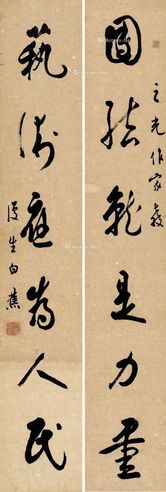 之光作家教
團結就是力量
藝術應為人民
復生白蕉